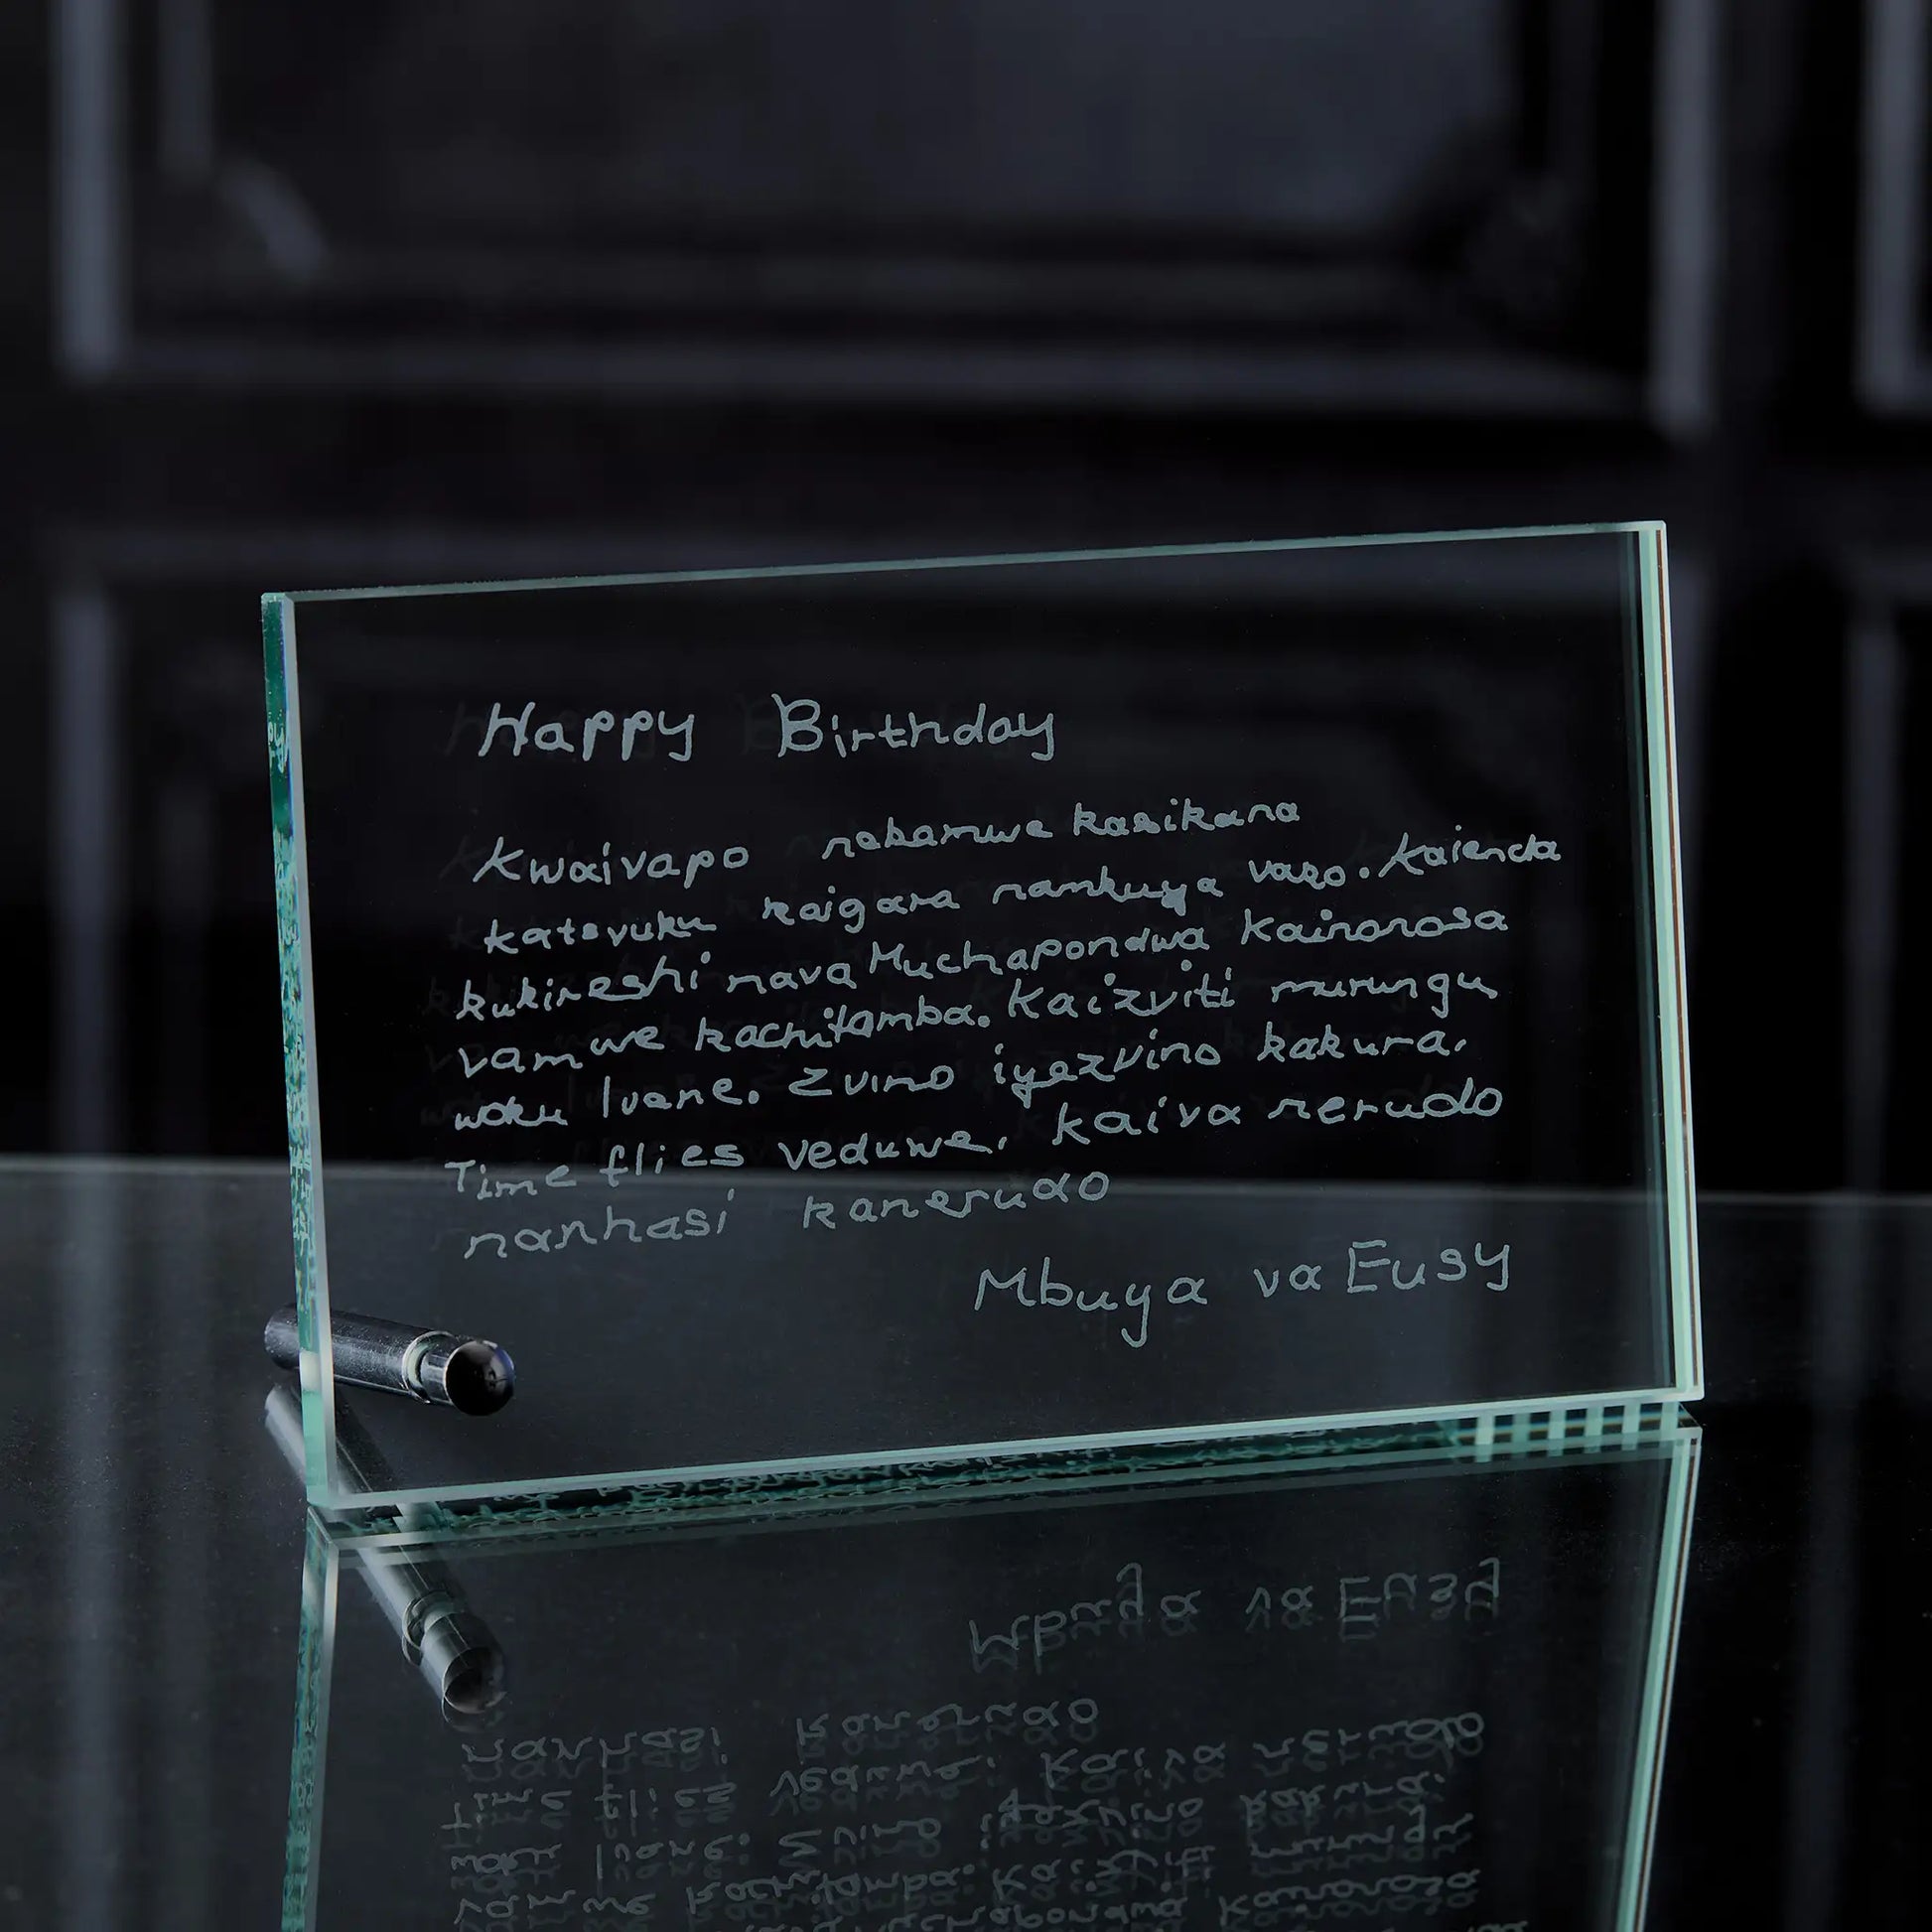 Happy Birthday
Kwaivapo nekamwe kasikana
katsvuku kaigara nambuya vako. Kaienda
kukireshi nava Muchapondwa Kainorosa
vamwe kachitamba. Kaizviti murungu
woku Ivene. Zvino iyezvino kakura.
Time flies veduwe, kaiva nerudo
nanhasi kanerudo
Mbuya va Eusy